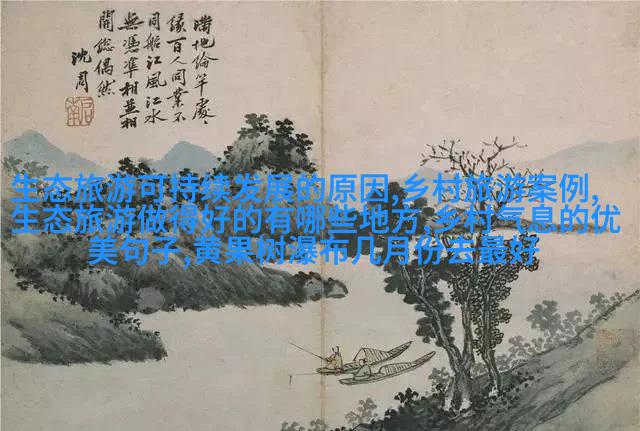 滿地綸竿處〻
緣百人同業不
同船江風江水
無憑準相並相
開總偶然
沈周
生态旅游可持续发展的原因,乡村旅游案例,
生态旅游做得好的有哪些地方,乡村气息的优
美句子,黄果树瀑布几月份去最好